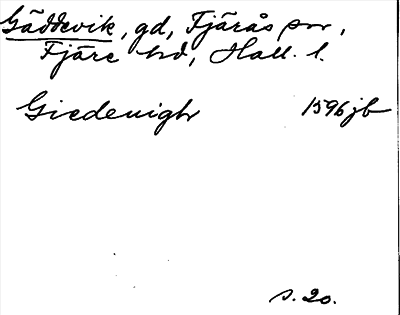 Gäddevik, gd, Fjärås sn,
Fjäre hd, Hall. l.
Giedeuigh 1596 jb
s. 20.